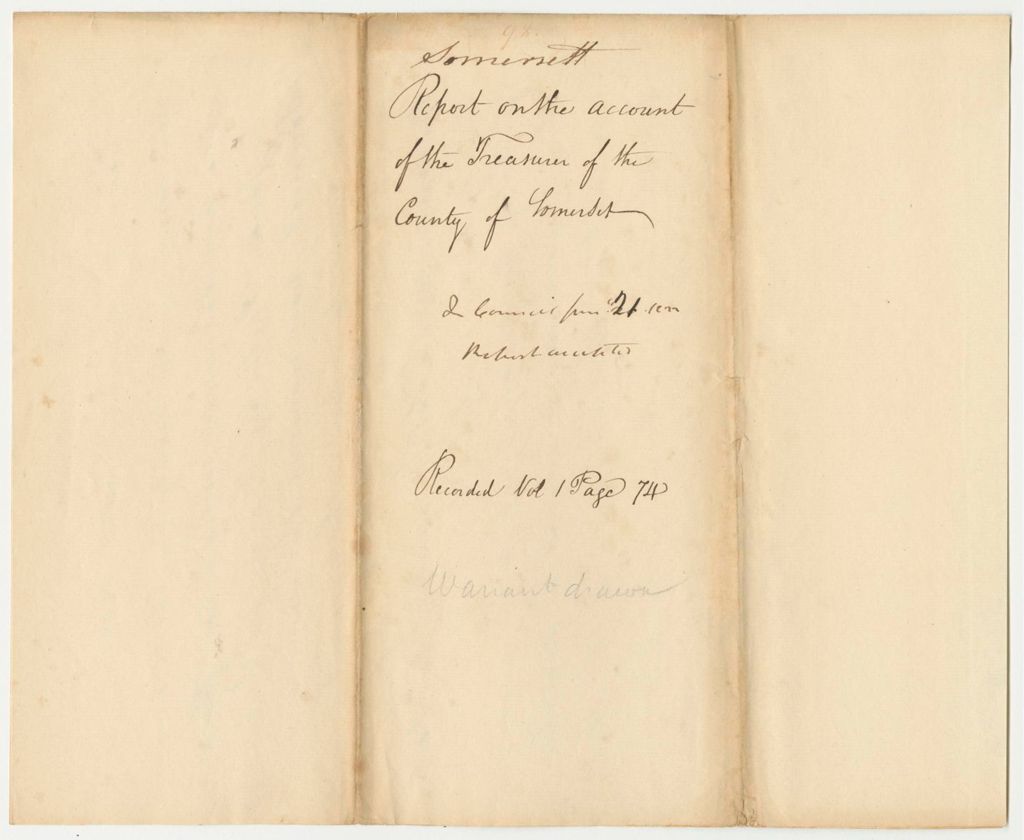 98
Somersett
Report on the account
of the Treasurer of the
County of Somerset
In Council June 21
Report accepted
Recorded Vol 1 Page 74
Warrant drawn